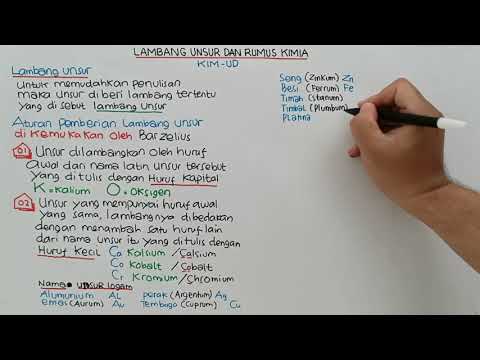 LAMBANG UNSUR DAN RUMUS KIMIA
KIM-UD
Lambang unsur
untuk memudahkan penulisan
maka unsur di beri lambang tertentu
yang di sebut lambang unsur
Aturan Pemberian Lambang unsur
di Kemukakan oleh Barzelius
01 Unsur dilambangkan oleh huruf
awal dari nama latin unsur tersebut
yang ditulis dengan Huruf Kapital
K = Kalium O = Oksigen
02 Unsur yang mempunyai huruf awal
yang sama, lambangnya dibedakan
dengan menambah satu huruf lain
dari nama unsur itu yang ditulis dengan
Huruf Kecil Ca Kalsium / Calsium
Co Kobalt / Cobalt
Cr Kromium / Chromium
Nama unsur logam
Alumunium AL perak (Argentum) Ag
emas (Aurum) Au Tembaga (Cuprum) Cu
Seng (Zinkum) Zn
Besi (Ferrum) Fe
Timah (Stanum)
Timbal (Plumbum)
Platina